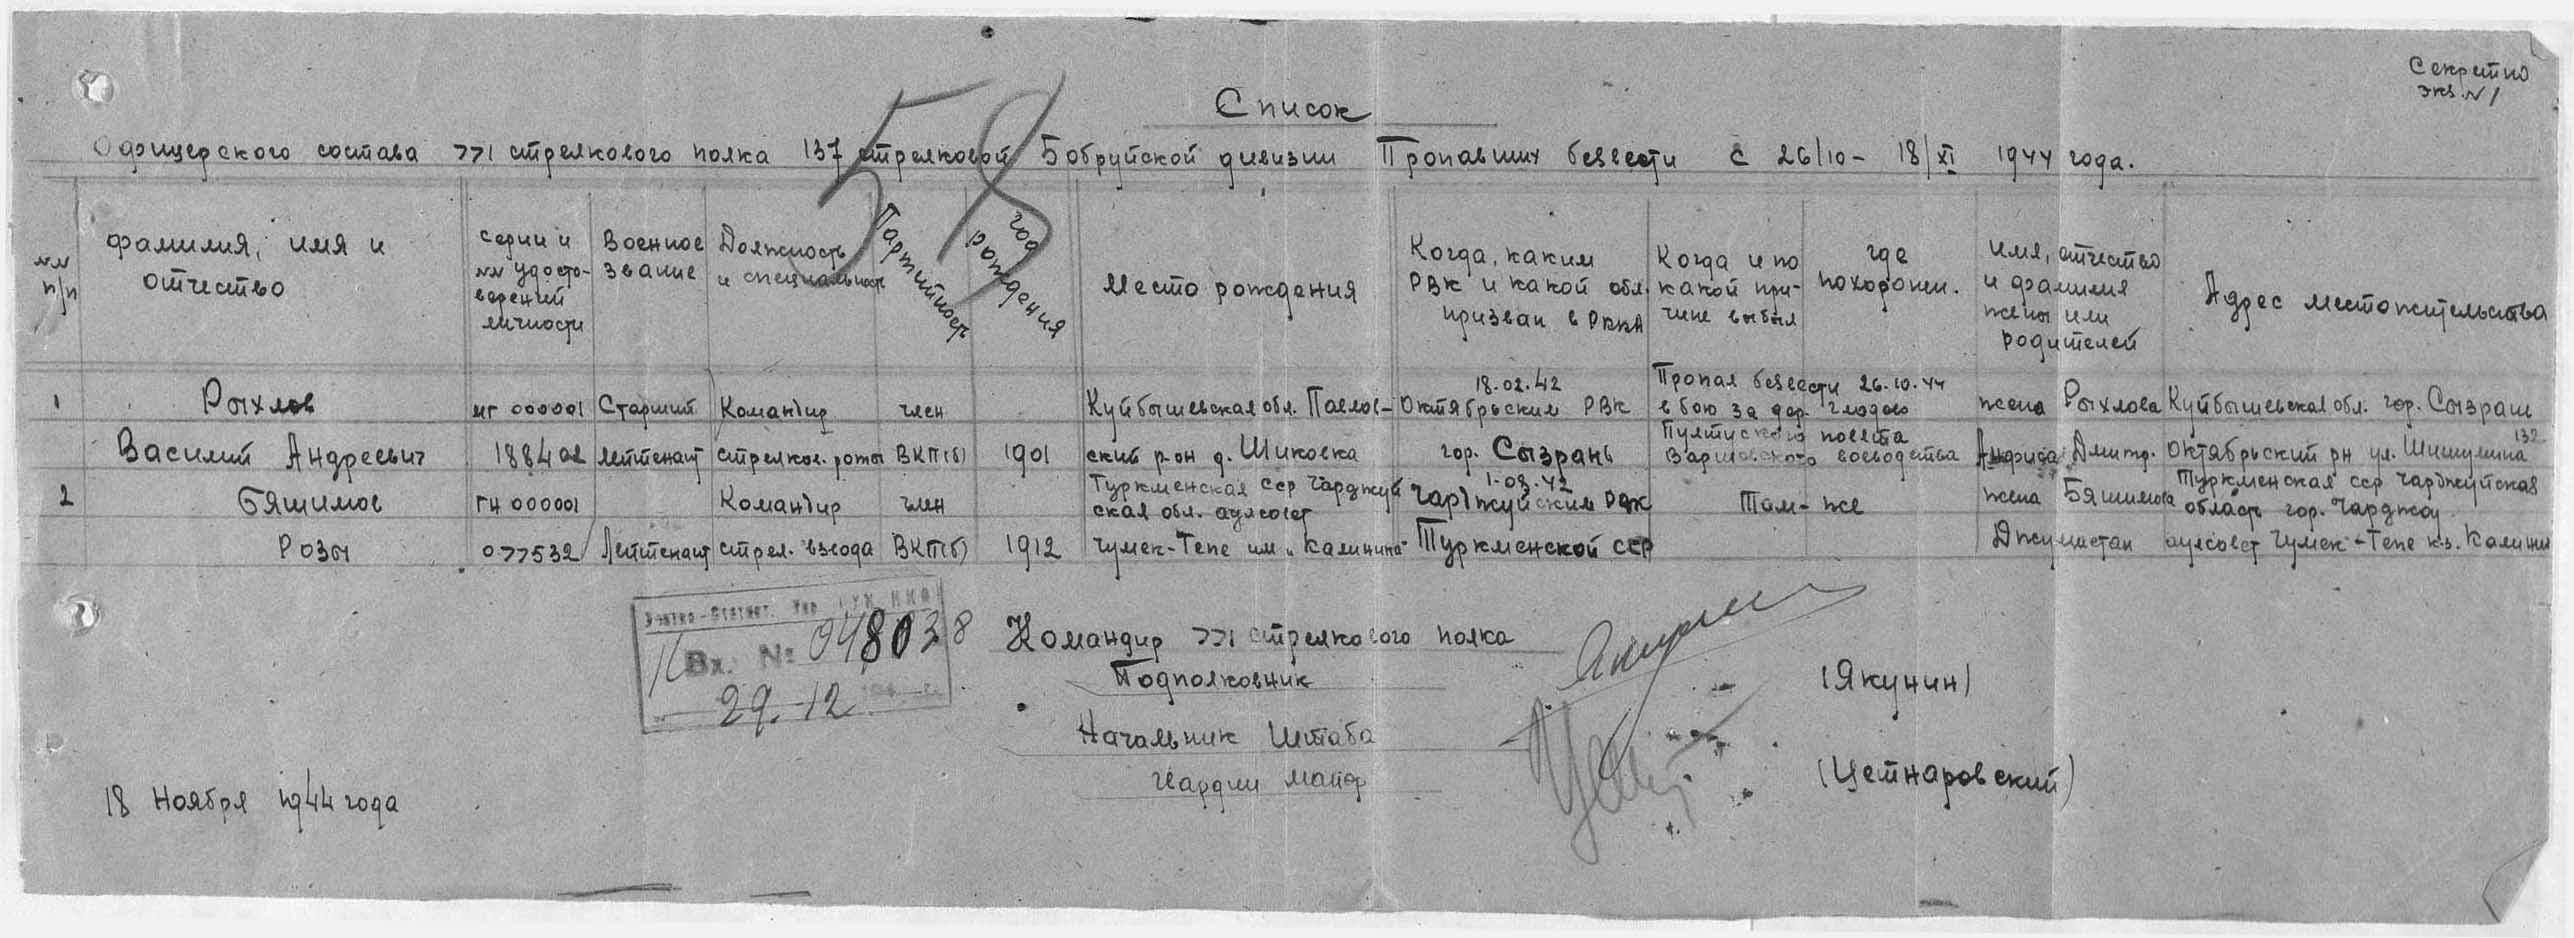 Секретно
экз. №1
58
Список
Офицерского состава 771 стрелкового полка 137 стрелковой Бобруйской дивизии Пропавших безвести с 26/10 - 18/XI 1944 года.
№№ п/п
фамилия, имя и отчество
серии и №№ удостоверений личности
Военное звание
Должность и специальность
Партийность
год рождения
Место рождения
Когда, каким РВК и какой обл. призван в РККА
Когда и по какой причине выбыл
где похоронен.
имя, отчество и фамилия жены или родителей
Адрес местожительства
1
Рыхлов Василий Андреевич
000001 188402
Старший лейтенант
Командир стрелков. роты
член ВКП(б)
1901
Куйбышевская обл. Павлов-
ский р-он д. Шиковка
18.02.42
Октябрьским РВК
гор. Сызрань
Пропал безвести 26.10.44
в бою за дер.
Пултуского повета
Варшавского воеводства
жена Рыхлова
Дмитр.
Куйбышевская обл. гор. Сызрань
Октябрьский рн ул. 132
2
Бяшимов Розы
ГН 000001 077532
Лейтенант
Командир стрел. взвода
член ВКП(б)
1912
Туркменская сср Чарджуй
ская обл. аулсовет
Чумек-Тепе им „Калинина"
1-03.42
Чарджуйским РВК
Туркменской ССР
Там-же
жена Бяшимова
Туркменская сср Чарджуйская
область гор. Чарджоу
аулсовет Чумек-Тепе кз. Калинин
Вх. № 048038
29.12
Командир 771 стрелкового полка
Подполковник
(Якунин)
Начальник Штаба
Гвардии майор
(Цетнаровский)
18 Ноября 1944 года